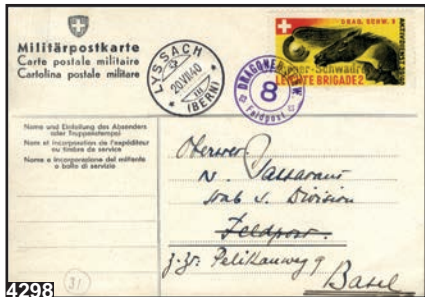 Militärpostkarte
Carte postale militaire
Cartolina postale militare
LYSSACH
20.VII.40
(BERN)
DRAGONER
8
Feldpost
DRAG. SCHW. 8
LEICHTE BRIGADE 2
Name und Einteilung des Absenders
oder Truppenstempel
Nom et incorporation de l'expéditeur
ou timbre de service
Nome e incorporazione del mittente
o bollo di servizio
N.
Stab v. Division
Feldpost.
z. Zt. Pelikanweg 9
Basel
4298
31